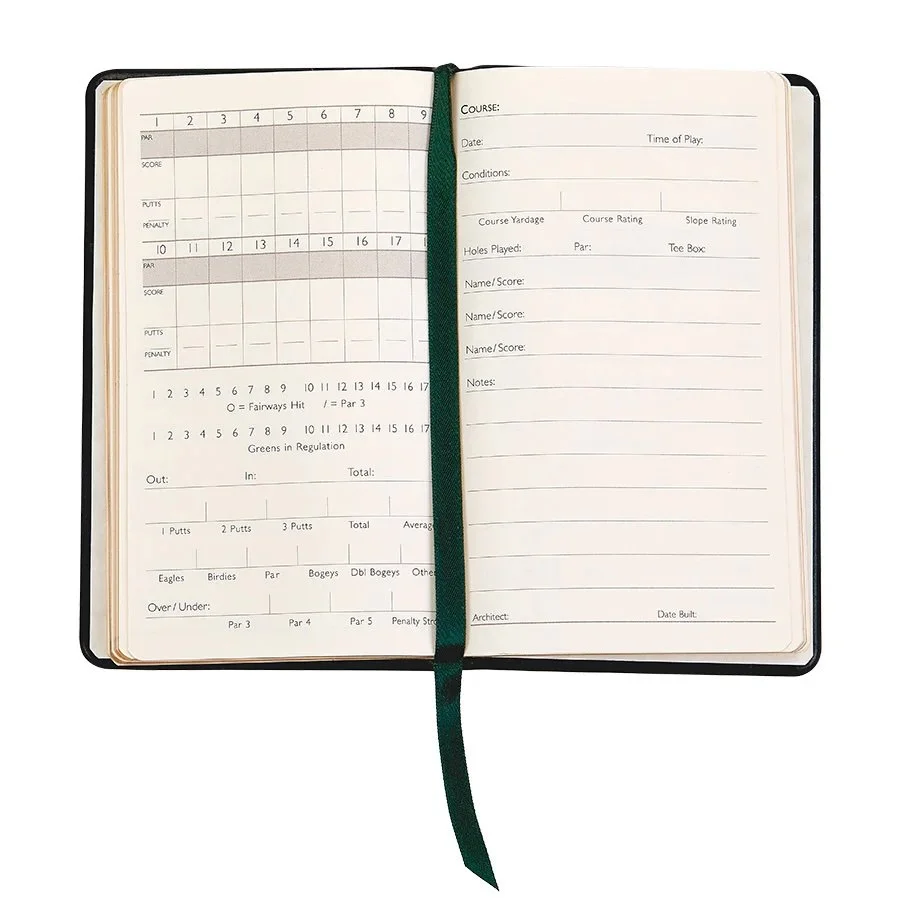 1 2 3 4 5 6 7 8 9
PAR
SCORE
PUTTS
PENALTY
10 11 12 13 14 15 16 17 1
PAR
SCORE
PUTTS
PENALTY
1 2 3 4 5 6 7 8 9 10 11 12 13 14 15 16 17
O = Fairways Hit / = Par 3
1 2 3 4 5 6 7 8 9 10 11 12 13 14 15 16 17
Greens in Regulation
Out: In: Total:
1 Putts 2 Putts 3 Putts Total Averag
Eagles Birdies Par Bogeys Dbl Bogeys Othe
Over / Under:
Par 3 Par 4 Par 5 Penalty Str
COURSE:
Date: Time of Play:
Conditions:
Course Yardage Course Rating Slope Rating
Holes Played: Par: Tee Box:
Name/Score:
Name/Score:
Name/Score:
Notes:
Architect: Date Built: